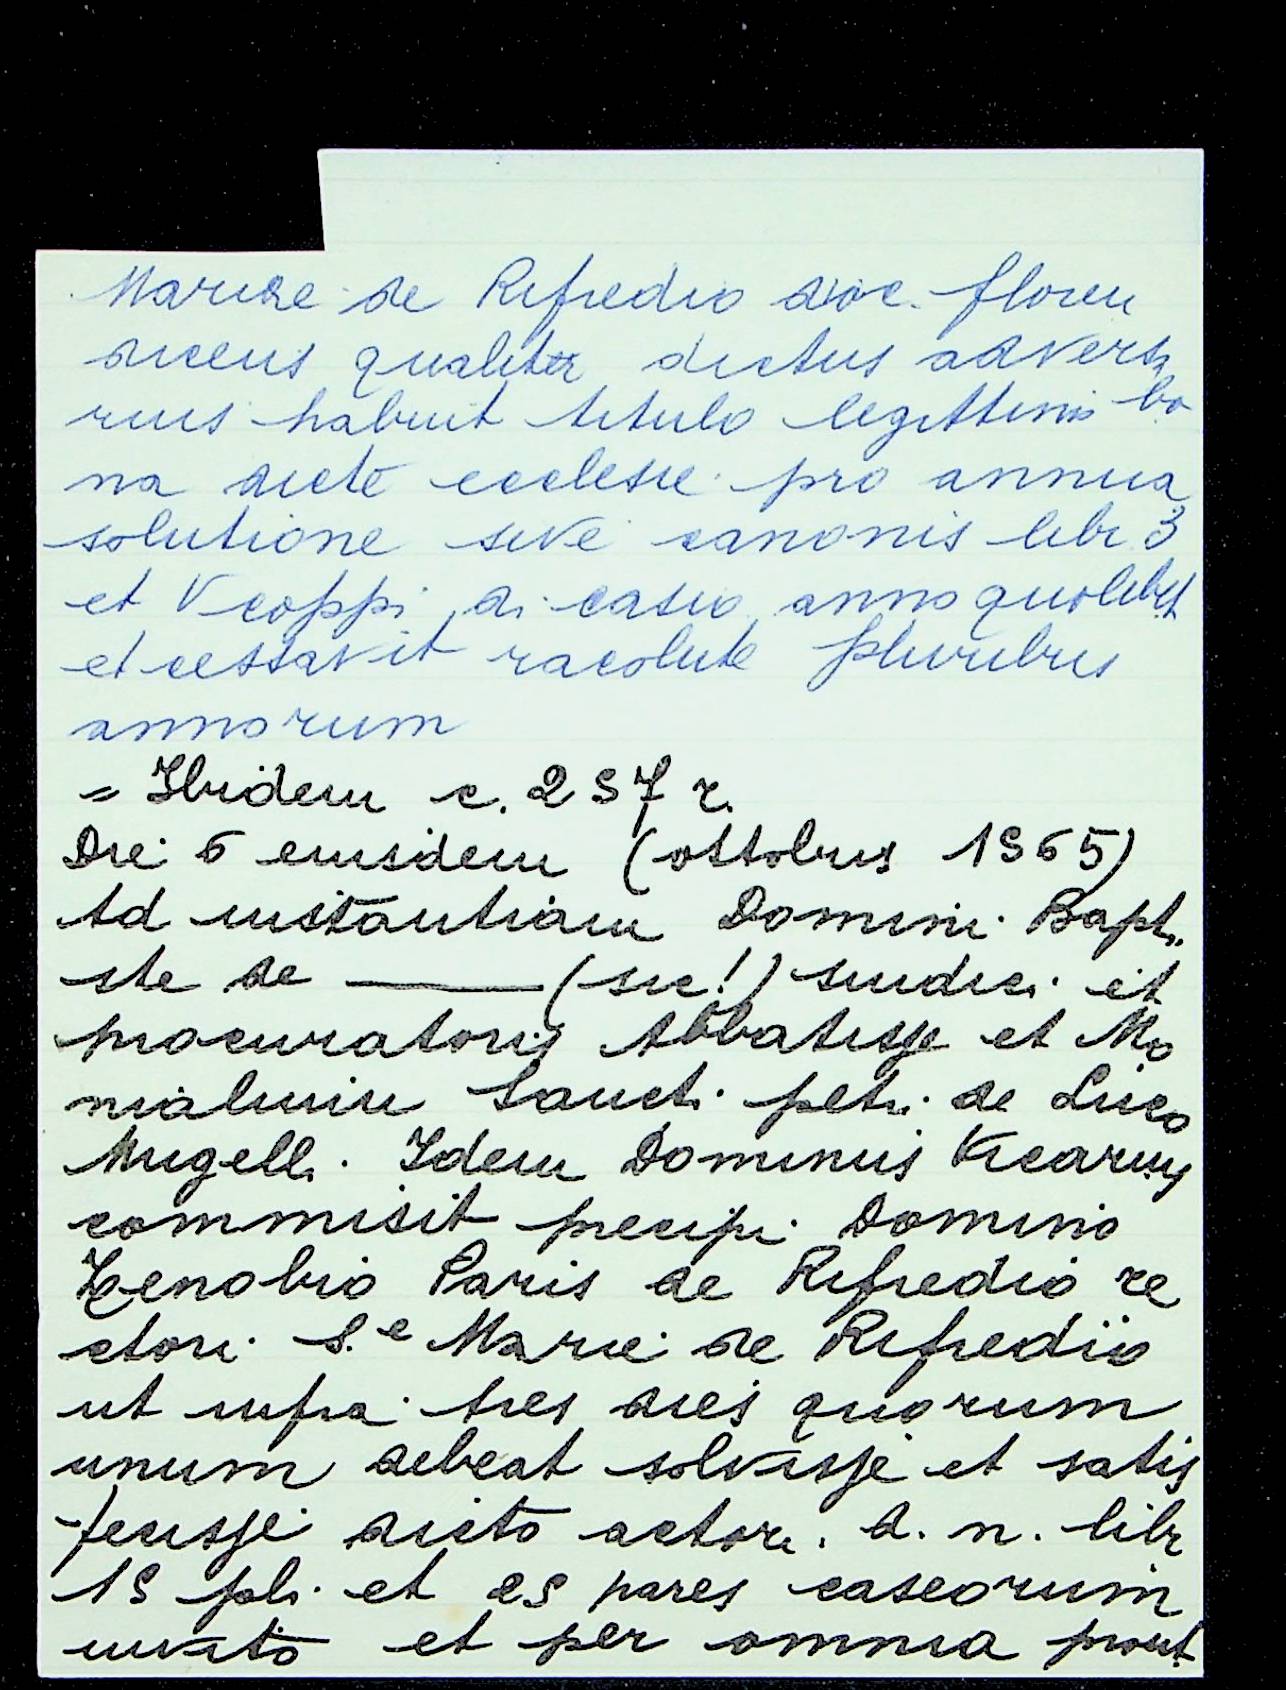 Marice de Rifredio dioc. floren
dicens qualiter dictus adversa
rius habuit titulo legittimo bo
na dicte ecclesie pro annua
solutione sive canonis libr 3
et V coppi di casio anno quolibet
et cessavit racolute pluribus
annorum
= Ibidem c. 257 r.
Die 6 eiusdem (ottobris 1565)
Ad instantiam Domini Bapti
ste de ——— (sic!) sindici et
procuratoris Abbatisse et Mo
nialium Sancti petri de Luco
Mugelli. Idem Dominus Vicarius
commisit precipi Domino
Zenobio Paris de Rifredio re
ctori S.e Marie de Rifredio
ut infra tres dies quorum
unum debeat solvisse et satis
fecisse dicto actori d. n. libr
15 pli et 25 pares caseorum
invito et per omnia prout